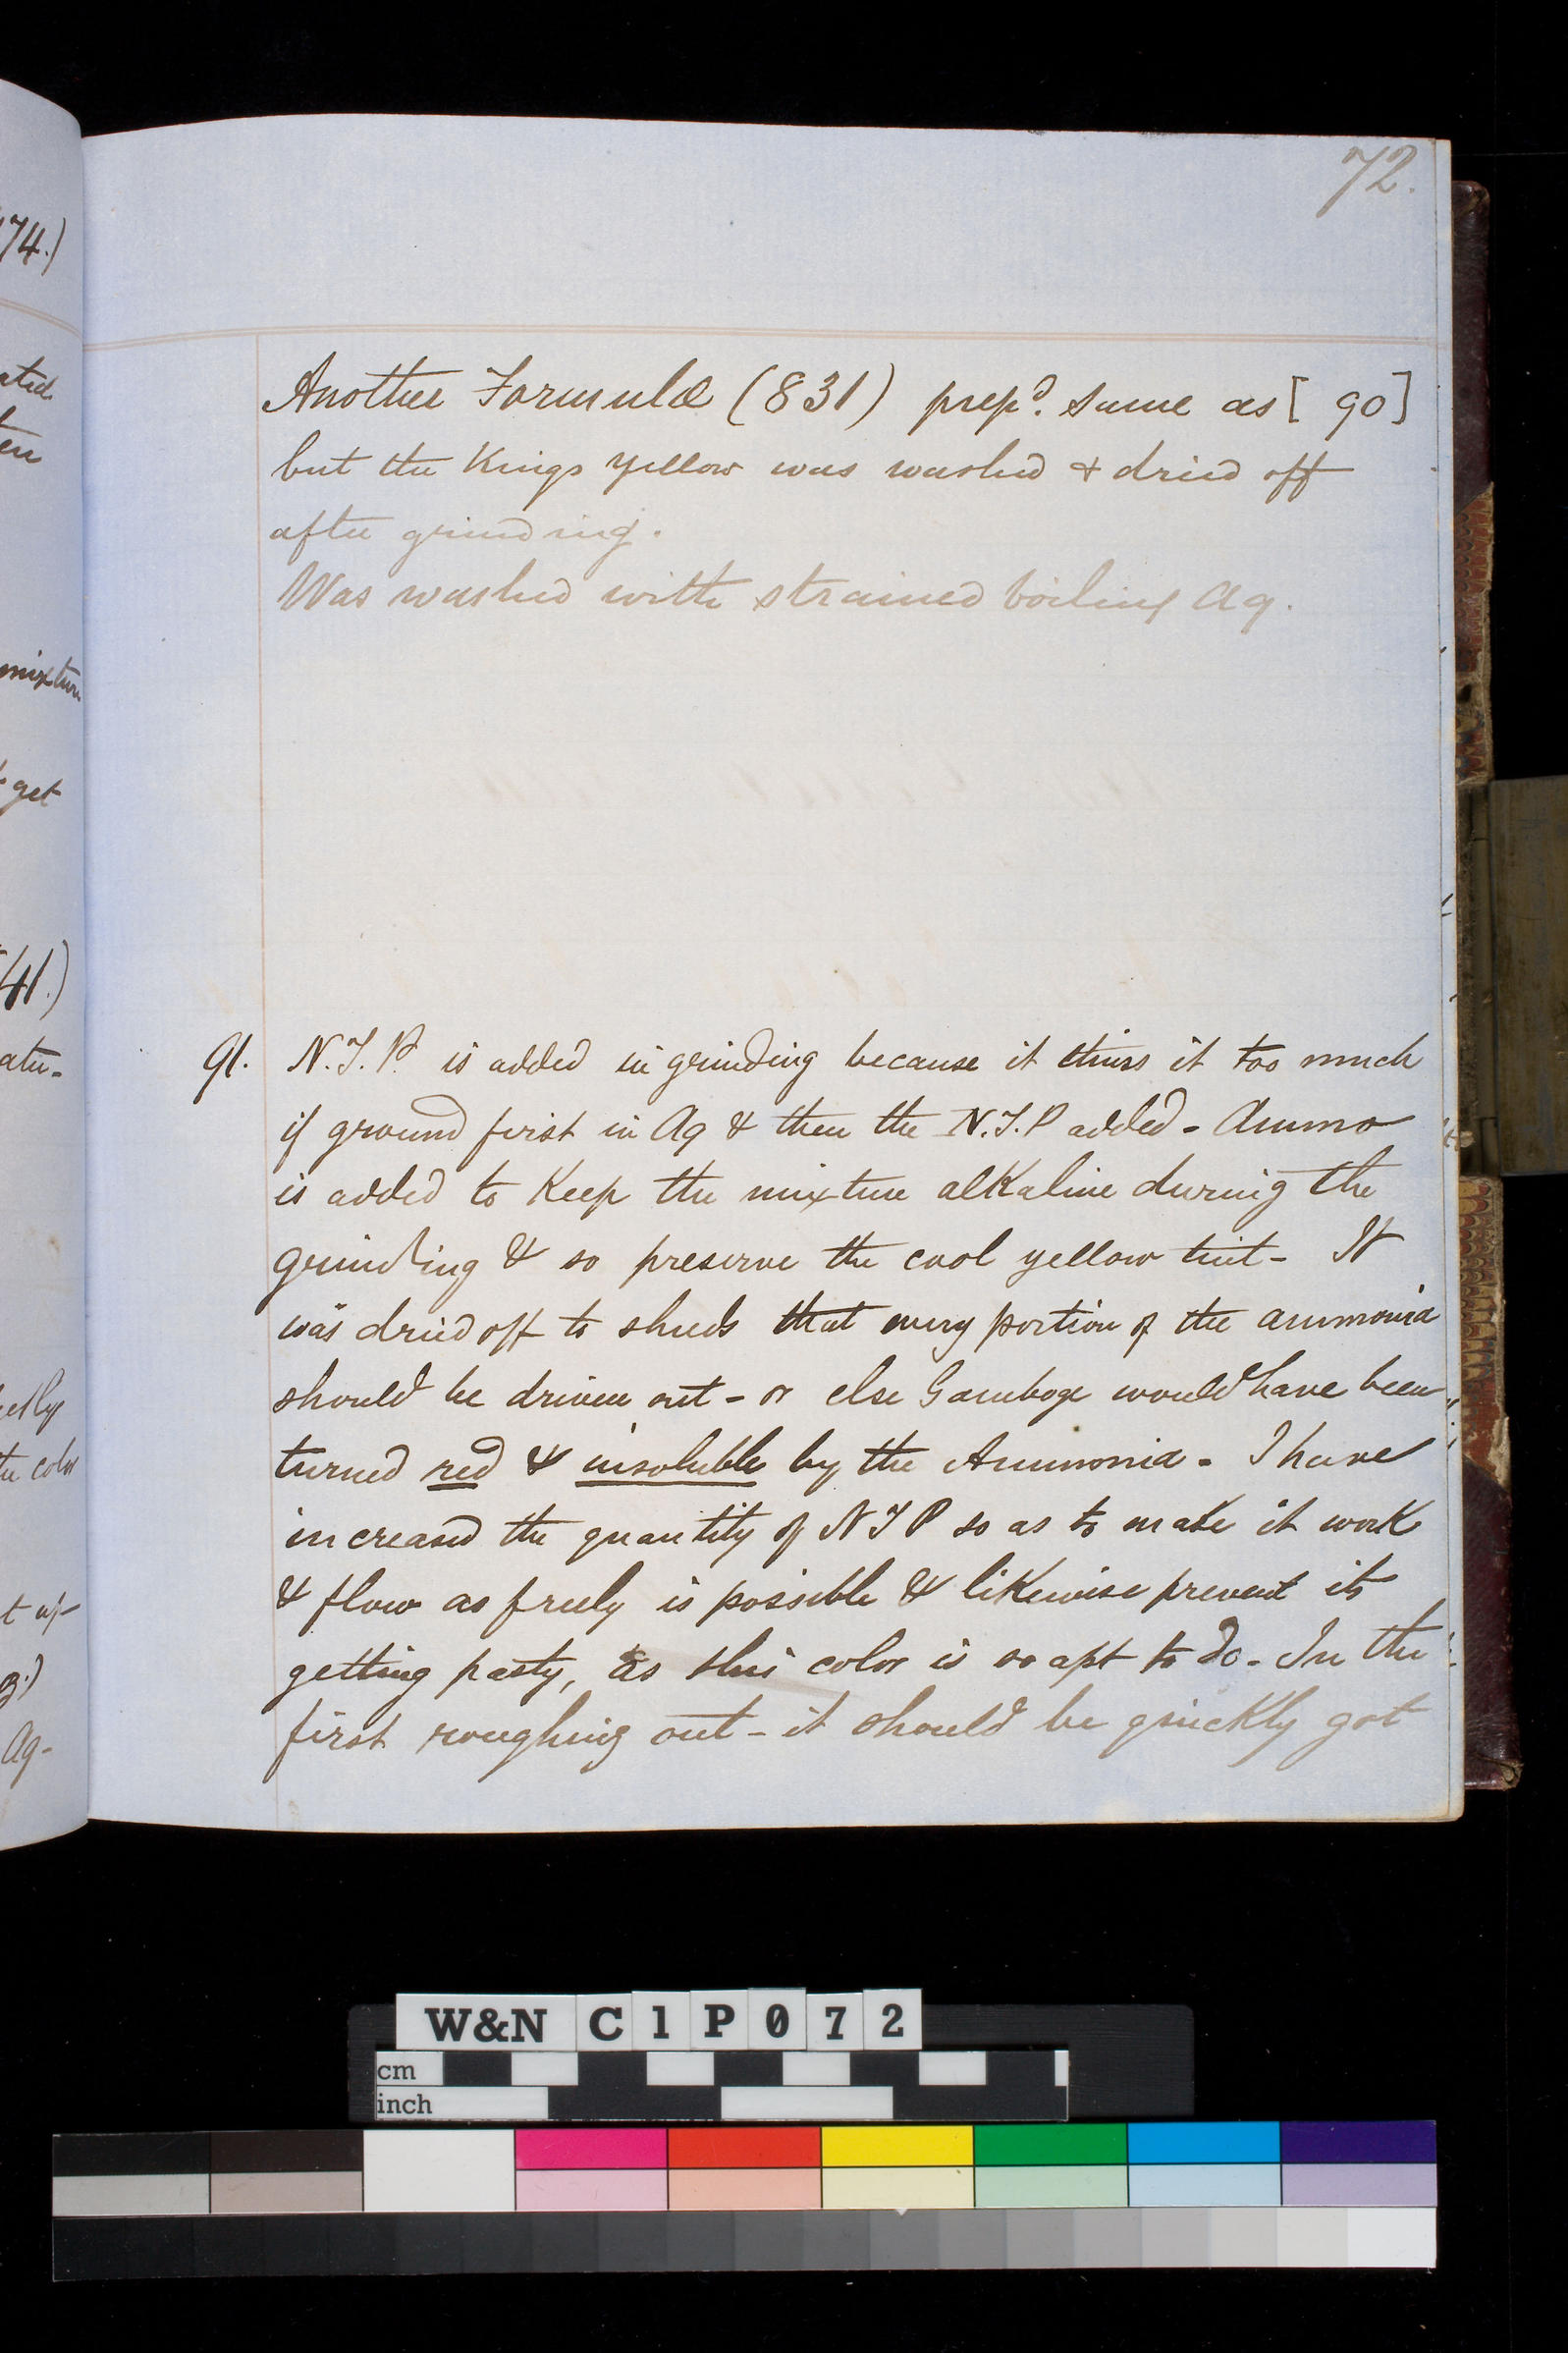 72.
74.)
mixture
get
41.)
Ag-
Another Formula (831) prepd. same as [90]
but the Kings Yellow was washed & dried off
after grinding.
Was washed with strained boiling Aq.
91. N.T.P. is added in grinding because it thins it too much
if ground first in Aq & then the N.T.P added - Ammo
is added to Keep the mixture alkaline during the
grinding & so preserve the cool yellow tint - It
was dried off to shreds that every portion of the ammonia
should be driven out - or else Gamboge would have been
turned red & insoluble by the Ammonia - I have
increased the quantity of NTP so as to make it work
& flow as freely is possible & likewise prevent its
getting pasty, as this color is so apt to do - In the
first roughing out - it should be quickly got
W&N C1P072
cm
inch